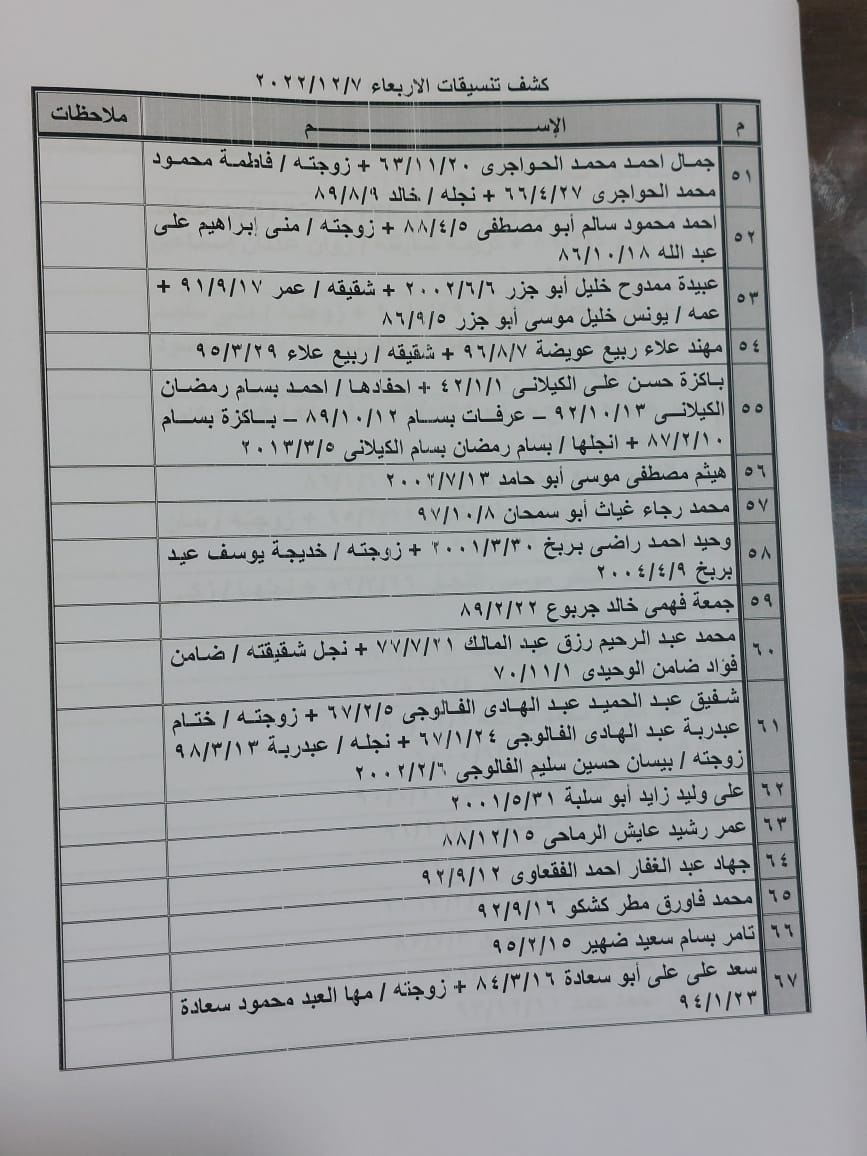 كشف تنسيقات الاربعاء ٢٠٢٢/١٢/٧
م الإســـــــم ملاحظات
٥١ جمال احمد محمد الحواجرى ٦٣/١١/٢٠ + زوجته / فاطمة محمود
محمد الحواجرى ٦٦/٤/٢٧ + نجله / خالد ٨٩/٨/٩
٥٢ احمد محمود سالم أبو مصطفى ٨٨/٤/٥ + زوجته / منى إبراهيم على
عبد الله ٨٦/١٠/١٨
٥٣ عبيدة ممدوح خليل أبو جزر ٢٠٠٢/٦/٦ + شقيقه / عمر ٩١/٩/١٧ +
عمه / يونس خليل موسى أبو جزر ٨٦/٩/٥
٥٤ مهند علاء ربيع عويضة ٩٦/٨/٧ + شقيقه / ربيع علاء ٩٥/٣/٢٩
٥٥ باكزة حسن على الكيلانى ٤٢/١/١ + احفادها / احمد بسام رمضان
الكيلانى ٩٢/١٠/١٣ – عرفات بسام ٨٩/١٠/١٢ – باكزة بسام
٨٧/٢/١٠ + انجلها / بسام رمضان بسام الكيلانى ٢٠١٣/٣/٥
٥٦ هيثم مصطفى موسى أبو حامد ٢٠٠٢/٧/١٣
٥٧ محمد رجاء غياث أبو سمحان ٩٧/١٠/٨
٥٨ وحيد احمد راضى بربخ ٢٠٠١/٣/٣٠ + زوجته / خديجة يوسف عيد
بربخ ٢٠٠٤/٤/٩
٥٩ جمعة فهمى خالد جربوع ٨٩/٢/٢٢
٦٠ محمد عبد الرحيم رزق عبد المالك ٧٧/٧/٢١ + نجل شقيقته / ضامن
فؤاد ضامن الوحيدى ٧٠/١١/١
٦١ شفيق عبد الحميد عبد الهادى الفالوجى ٦٧/٢/٥ + زوجته / ختام
عبدربة عبد الهادى الفالوجى ٦٧/١/٢٤ + نجله / عبدربة ٩٨/٣/١٣
زوجته / بيسان حسين سليم الفالوجى ٢٠٠٢/٢/٦
٦٢ على وليد زايد أبو سلبة ٢٠٠١/٥/٣١
٦٣ عمر رشيد عايش الرماحى ٨٨/١٢/١٥
٦٤ جهاد عبد الغفار احمد الفقعاوى ٩٢/٩/١٢
٦٥ محمد فاورق مطر كشكو ٩٢/٩/١٦
٦٦ تامر بسام سعيد ضهير ٩٥/٢/١٥
٦٧ سعد على على أبو سعادة ٨٤/٣/١٦ + زوجته / مها العبد محمود سعادة
٩٤/١/٢٣